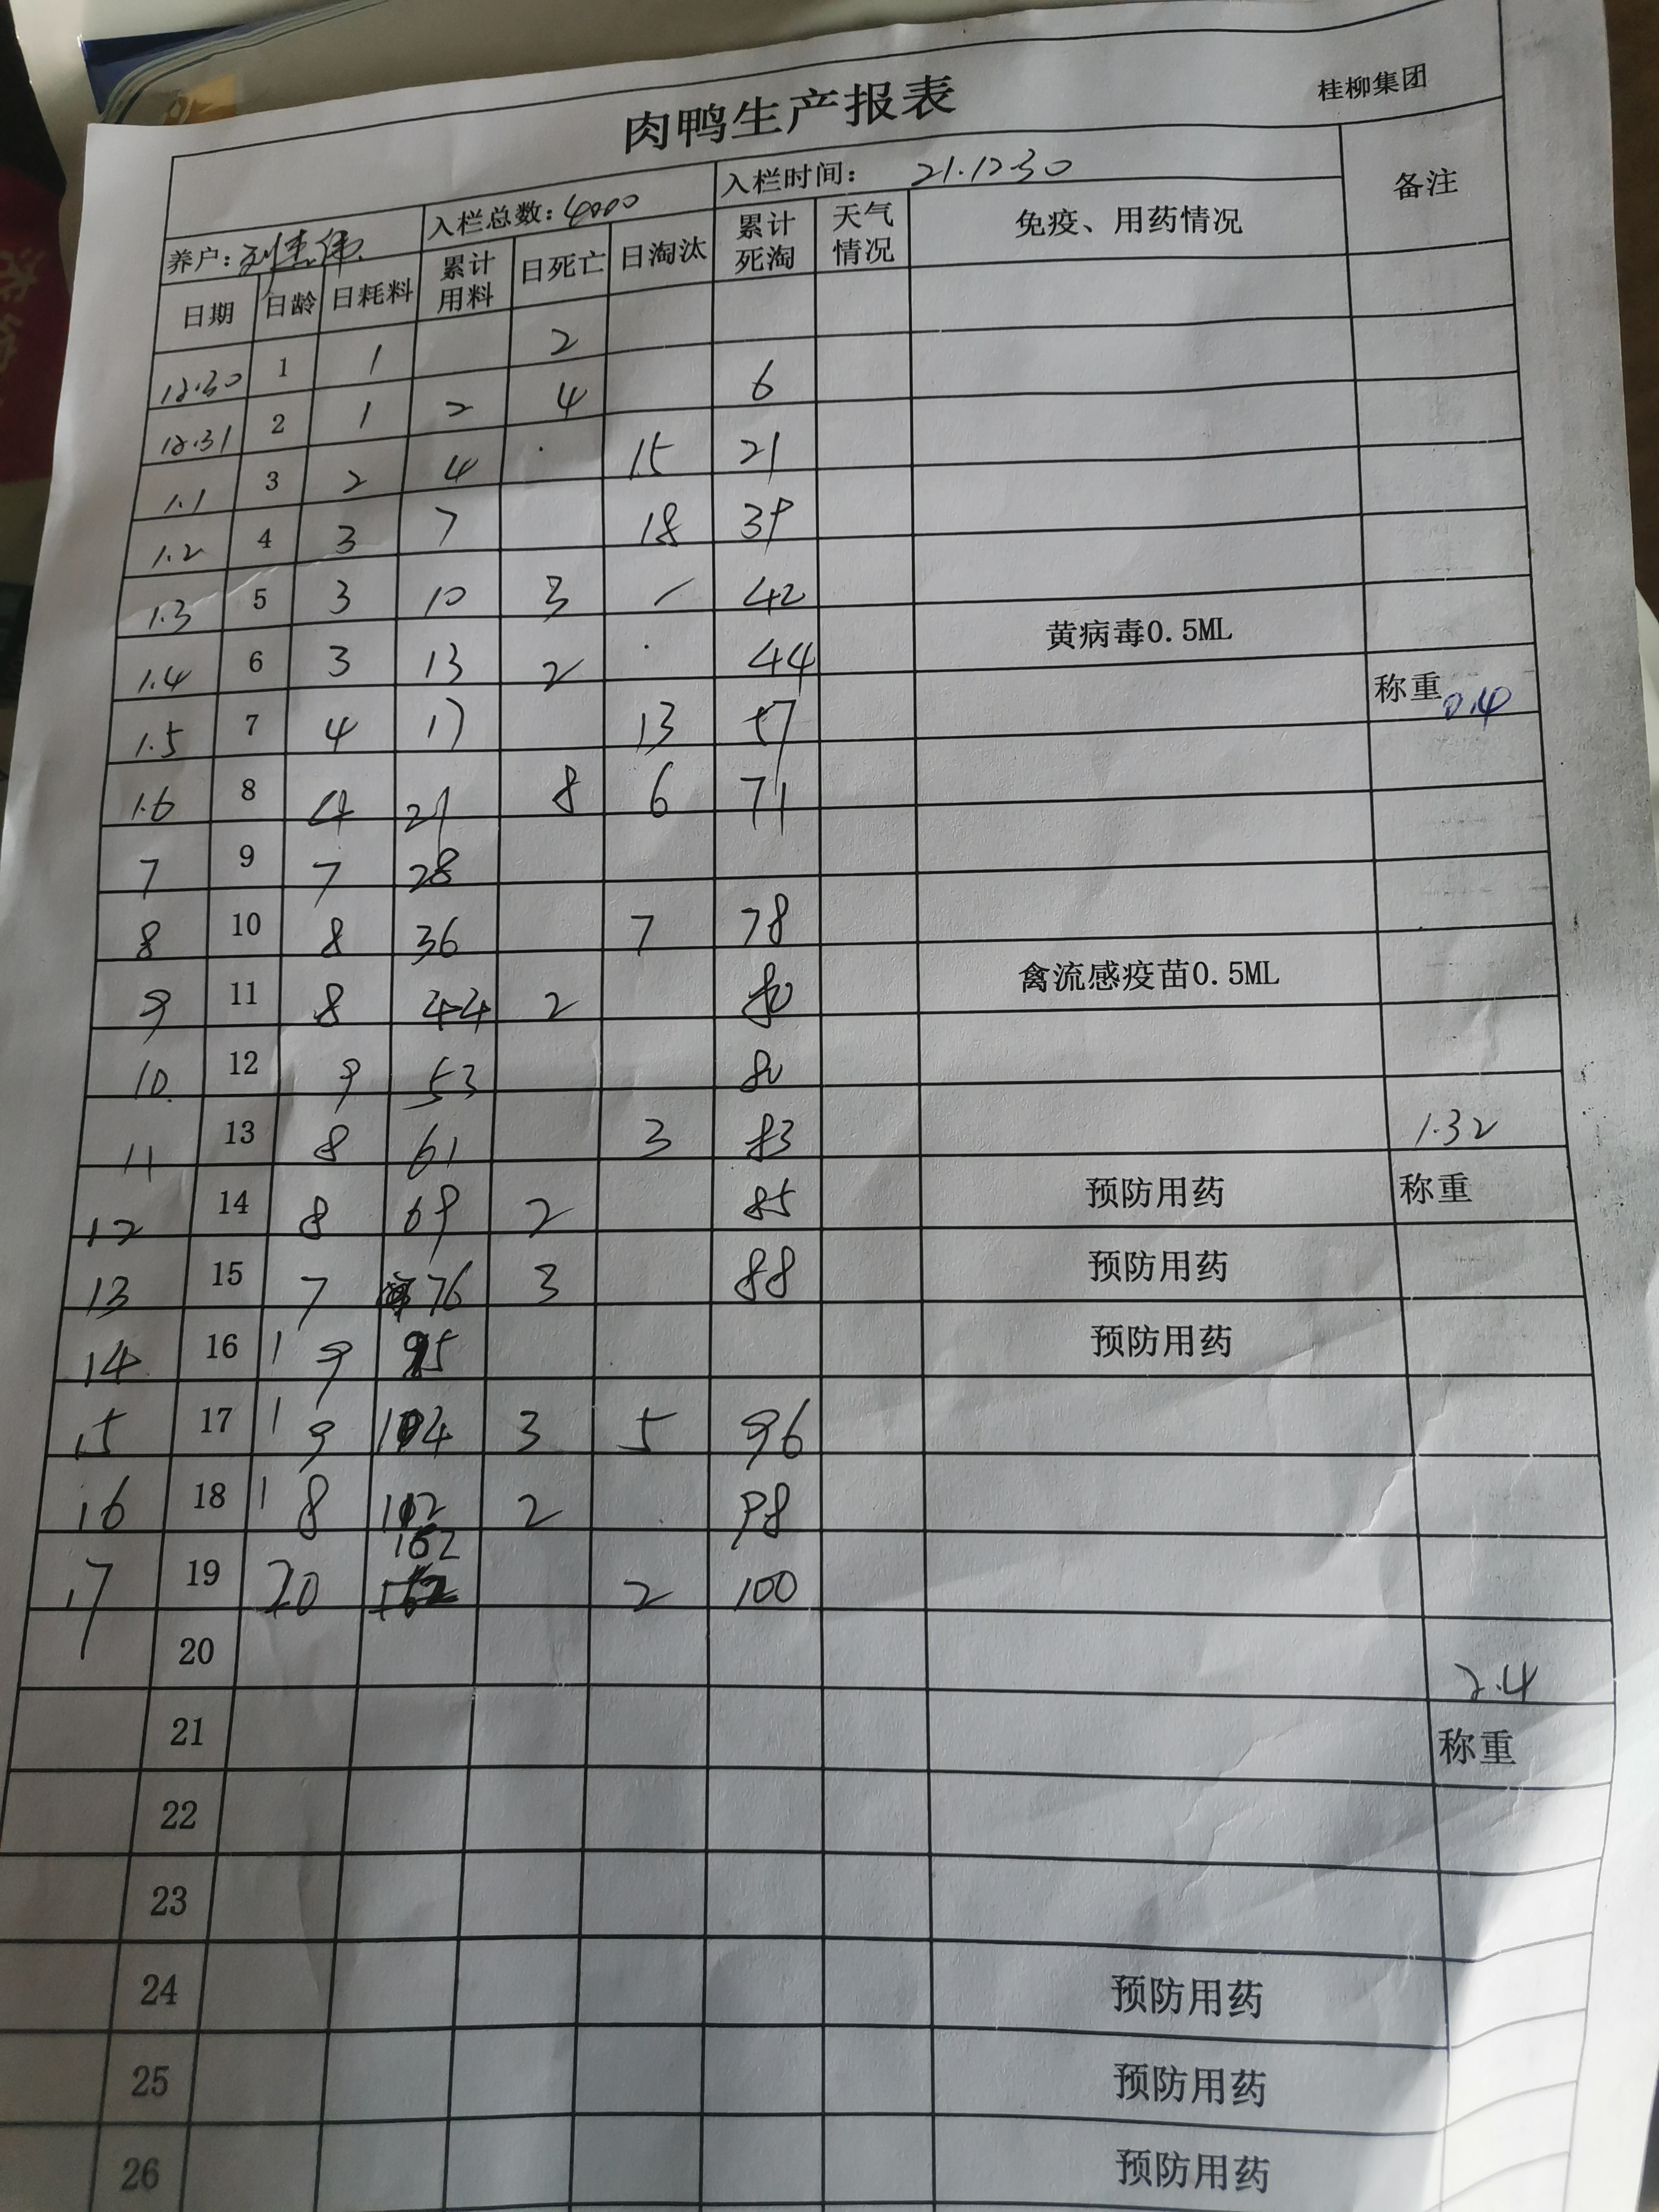 肉鸭生产报表
桂柳集团
养户: 入栏总数: 4000 入栏时间: 21.12.30 备注
日期 日龄 日耗料 累计用料 日死亡 日淘汰 累计死淘 天气情况 免疫、用药情况
12.30 1 1 2
12.31 2 1 2 4 6
1.1 3 2 4 15 21
1.2 4 3 7 18 39
1.3 5 3 10 3 42
1.4 6 3 13 2 44 黄病毒0.5ML
1.5 7 4 17 13 57 称重 0.4
1.6 8 4 21 8 6 71
7 9 7 28
8 10 8 36 7 78
9 11 8 44 2 80 禽流感疫苗0.5ML
10 12 9 53 80
11 13 8 61 3 83 1.32
12 14 8 69 2 85 预防用药 称重
13 15 7 76 3 88 预防用药
14 16 19 95 预防用药
15 17 19 3 5 96
16 18 18 2 98
17 19 20 152 2 100
20 2.4
21 称重
22
23
24 预防用药
25 预防用药
26 预防用药